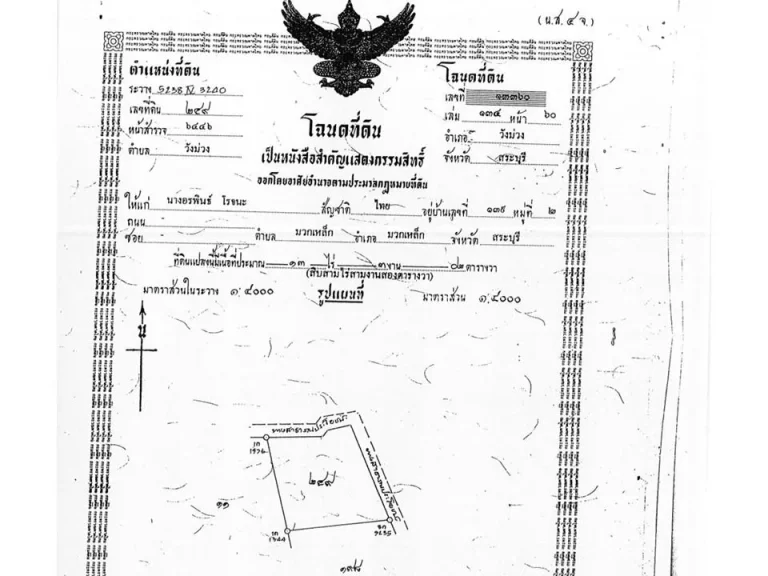 (น.ส. ๔ จ.)
ตำแหน่งที่ดิน
ระวาง 5238 IV 3240
เลขที่ดิน ๒๔๙
หน้าสำรวจ ๖๔๔๖
ตำบล วังม่วง
โฉนดที่ดิน
เลขที่ ๑๓๓๖๐
เล่ม ๑๓๔ หน้า ๖๐
อำเภอ วังม่วง
จังหวัด สระบุรี
โฉนดที่ดิน
เป็นหนังสือสำคัญแสดงกรรมสิทธิ์
ออกโดยอาศัยอำนาจตามประมวลกฎหมายที่ดิน
ให้แก่ นางอรพินธ์ โรจนะ สัญชาติ ไทย อยู่บ้านเลขที่ ๑๓๙ หมู่ที่ ๒
ถนน -
ซอย - ตำบล มวกเหล็ก อำเภอ มวกเหล็ก จังหวัด สระบุรี
ที่ดินแปลงนี้มีเนื้อที่ประมาณ ๑๓ ไร่ ๓ งาน ๐๒ ตารางวา
(สิบสามไร่สามงานสองตารางวา)
มาตราส่วนในระวาง ๑:๔๐๐๐ รูปแผนที่ มาตราส่วน ๑:๔๐๐๐
น
ทางสาธารณประโยชน์
ทางสาธารณประโยชน์
๒๔๙
๑๑